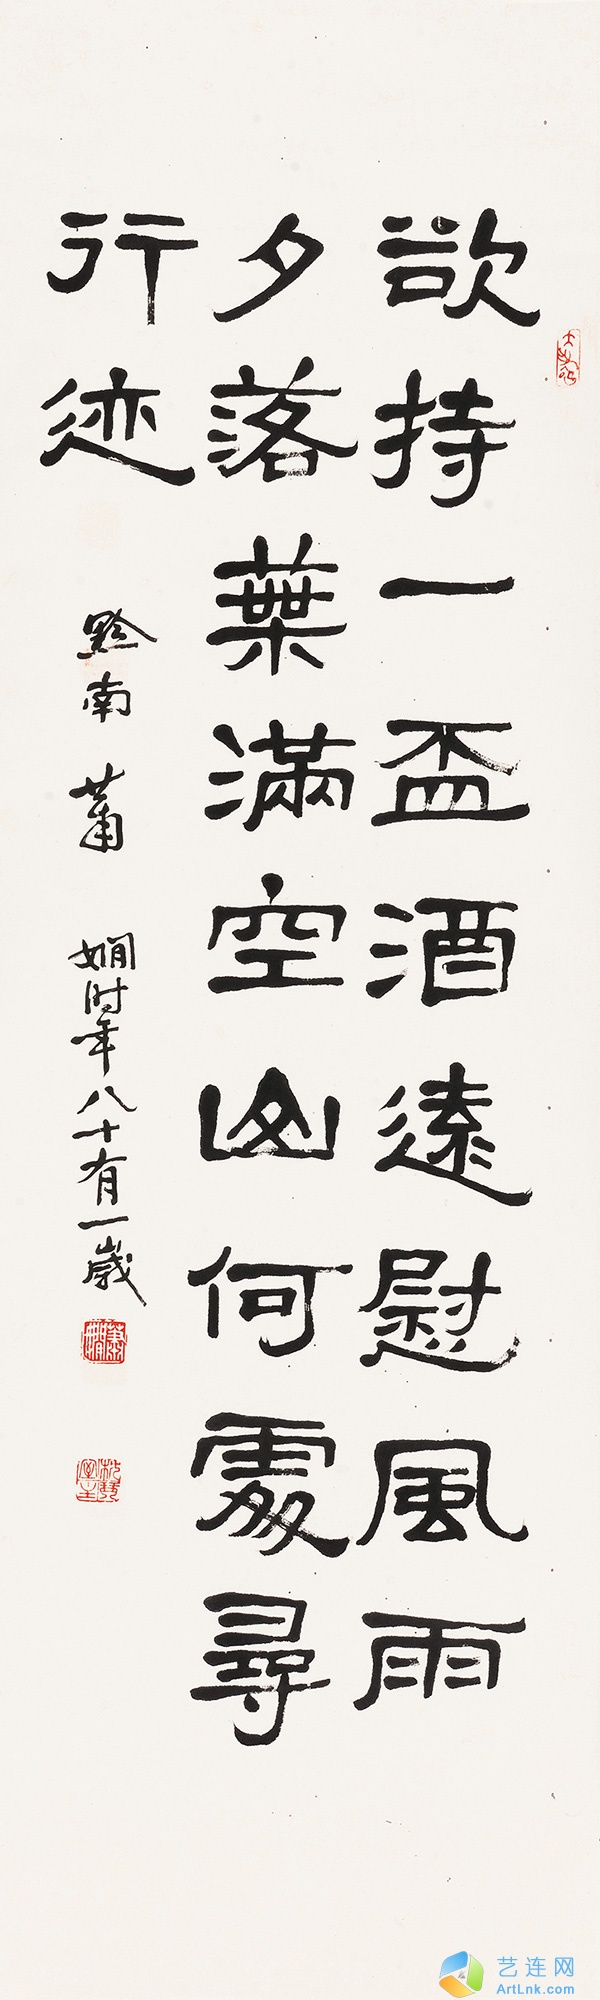 欲持一盃酒遠慰風雨
夕落葉滿空山何處尋
行迹
黔南蕭嫺时年八十有一歲
艺连网
ArtLnk.com